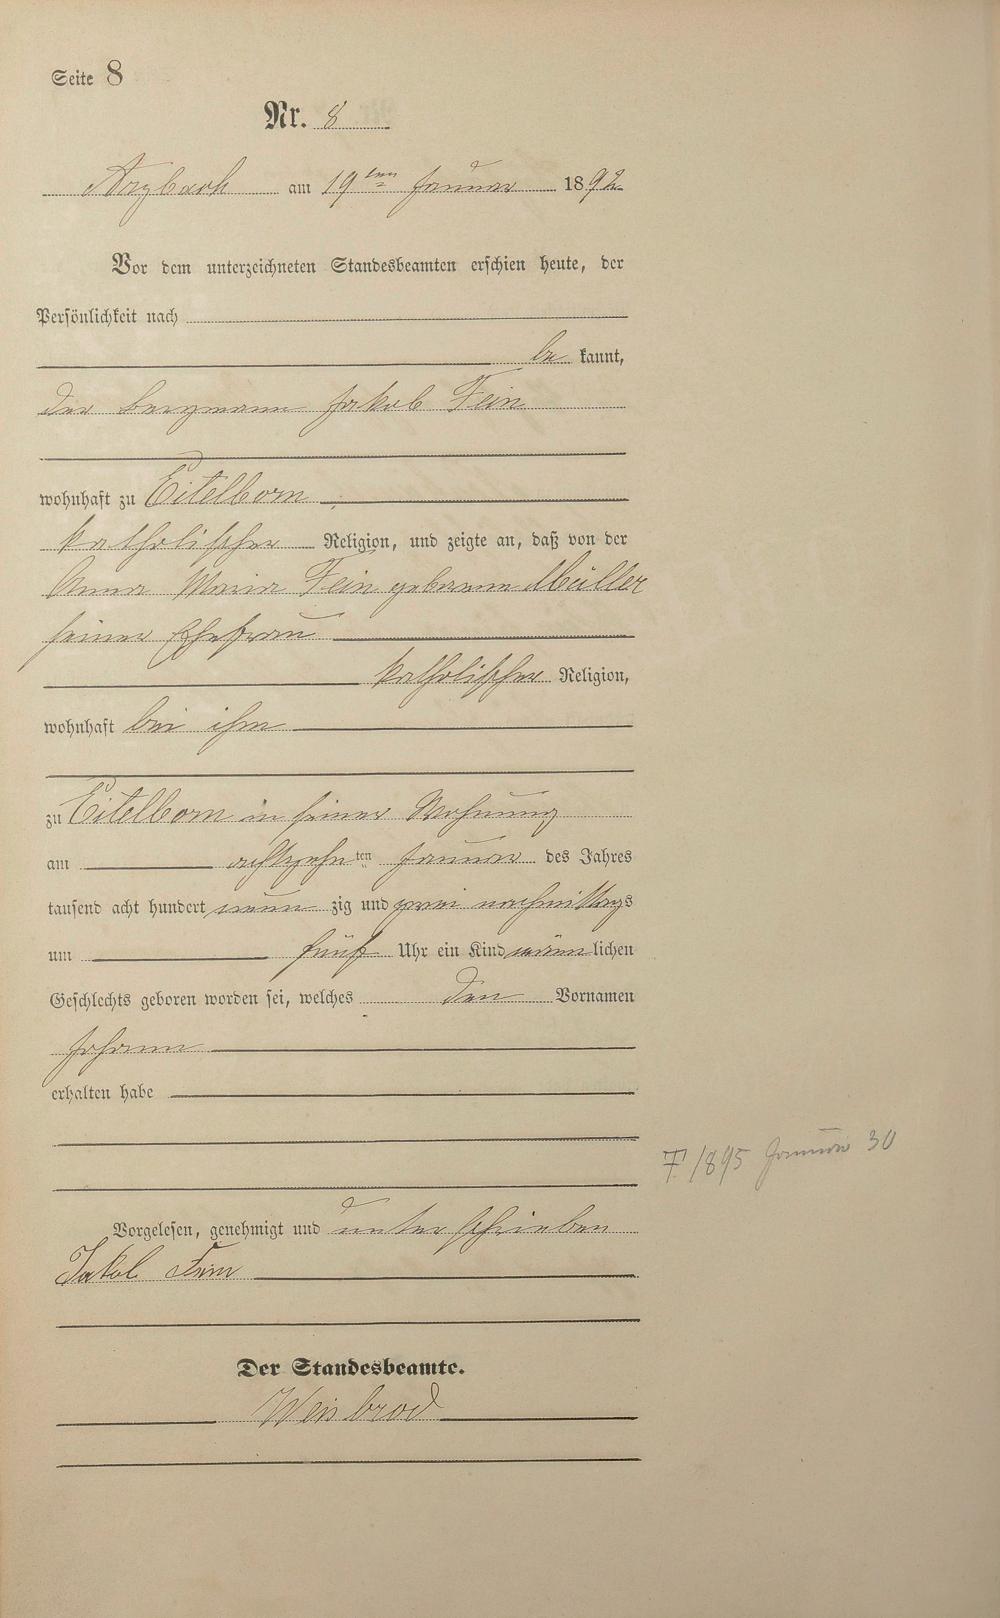 Seite 8
Nr. 8
Arzbach am 19ten Januar 1892
Vor dem unterzeichneten Standesbeamten erschien heute, der
Persönlichkeit nach
be kannt,
der Bergmann Jakob Fein
wohnhaft zu Eitelborn
katholischer Religion, und zeigte an, daß von der
Anna Maria Fein geborenen Müller
seiner Ehefrau
katholischer Religion,
wohnhaft bei ihm
zu Eitelborn in seiner Wohnung
am achtzehnten Januar des Jahres
tausend acht hundert neun zig und zwei nachmittags
um fünf Uhr ein Kind männlichen
Geschlechts geboren worden sei, welches den Vornamen
Johann
erhalten habe
† 1895 Januar 30
Vorgelesen, genehmigt und unterschrieben
Jakob Fein
Der Standesbeamte.
Weisbrod